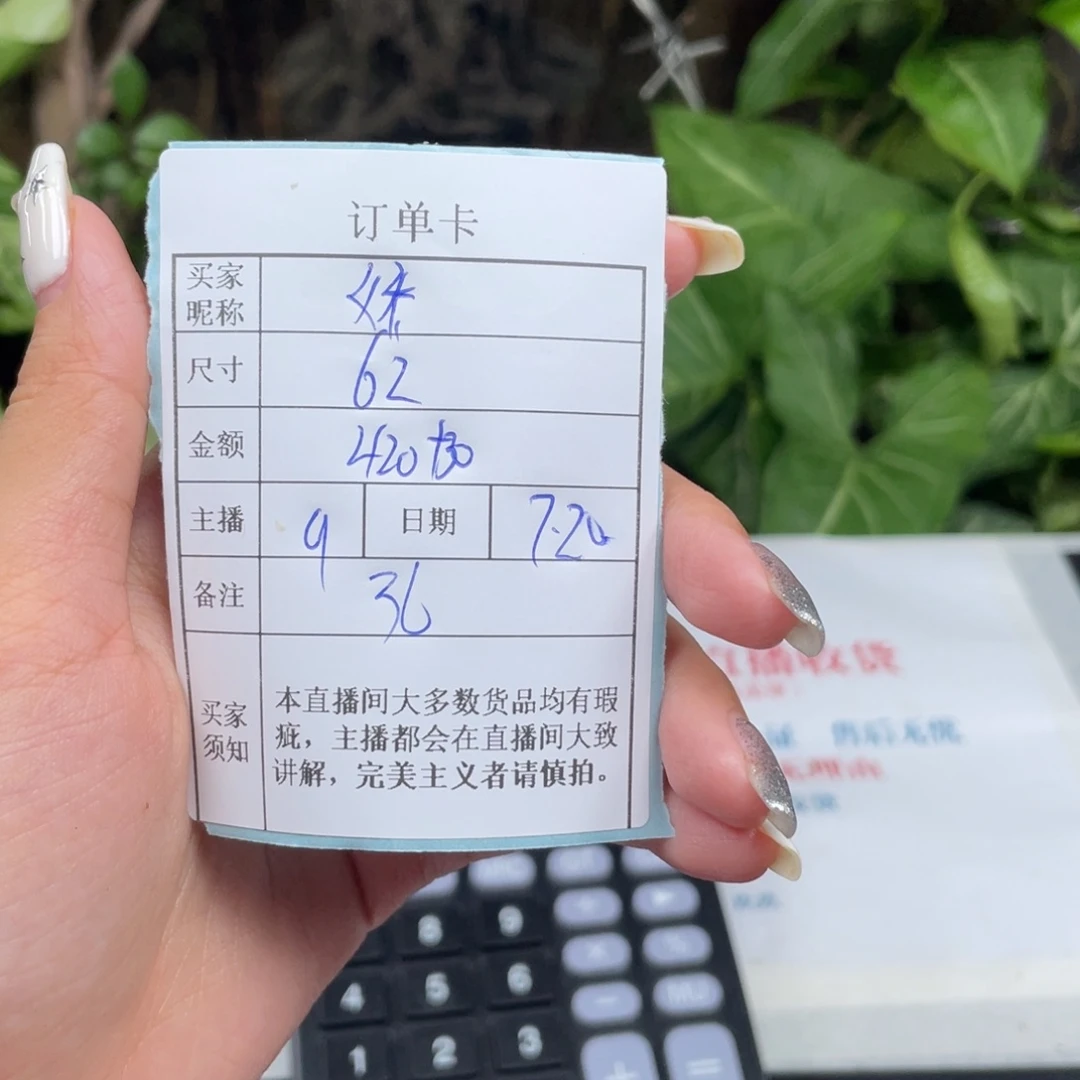 订单卡
买家昵称 妹
尺寸 62
金额 420+30
主播 9 日期 7.20
备注 36
买家须知
本直播间大多数货品均有瑕
疵，主播都会在直播间大致
讲解，完美主义者请慎拍。
直播收货
证 售后无忧
无理由
8 9
4 5 6
1 2 3
+ =